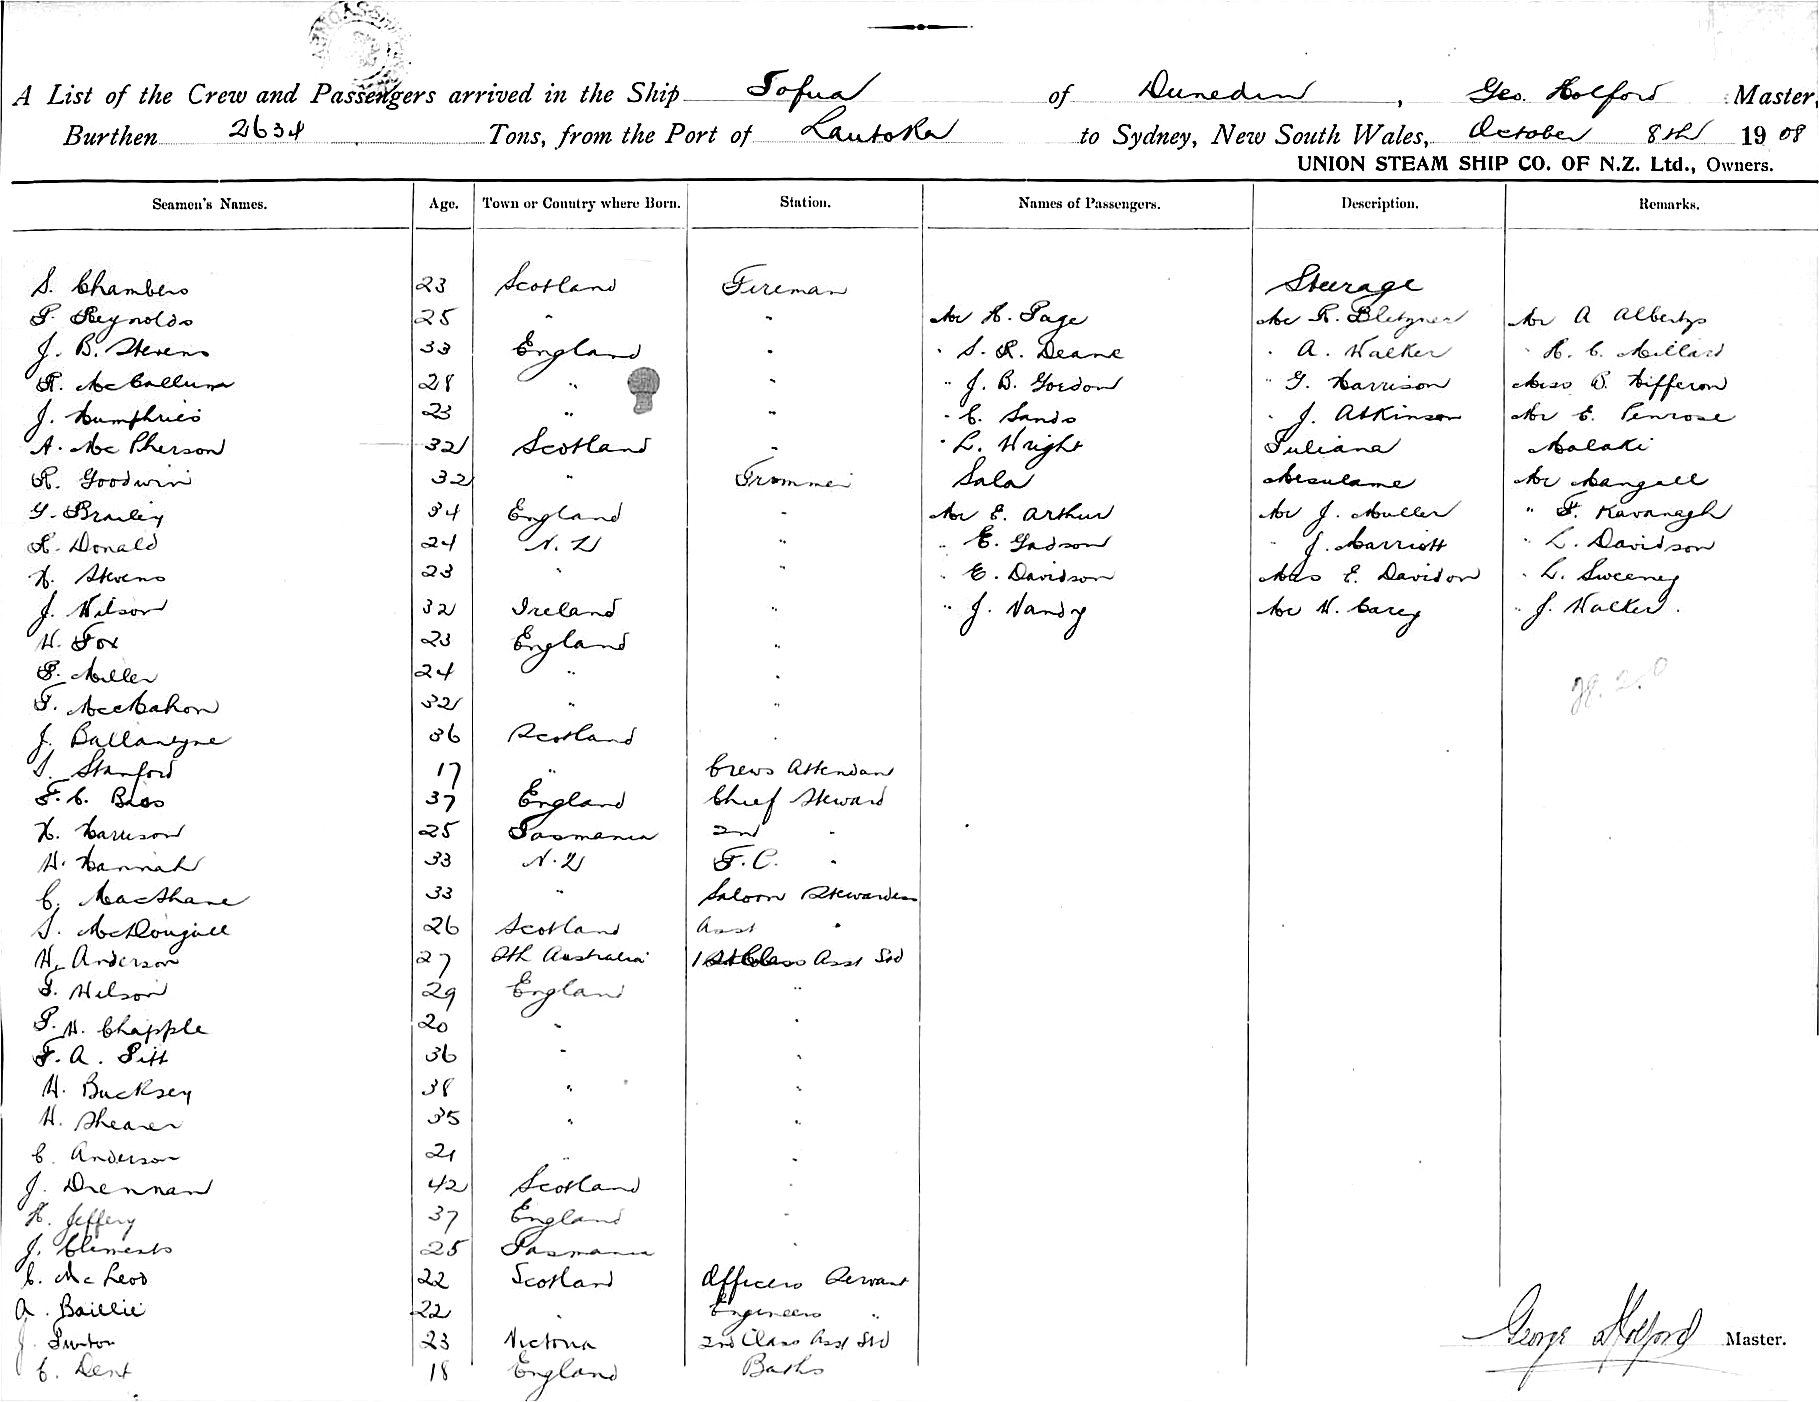 A List of the Crew and Passengers arrived in the Ship Tofua of Dunedin, Geo. Holford Master,
Burthen 2634 Tons, from the Port of Lautoka to Sydney, New South Wales, October 8th 1908
UNION STEAM SHIP CO. OF N.Z. Ltd., Owners.
Seamen's Names. Age. Town or Country where Born. Station. Names of Passengers. Description. Remarks.
S. Chambers 23 Scotland Fireman Steerage
P. Reynolds 25 " " Mr H. Page Mr R. Bletzner Mr A Albertzs
J. B. Stevens 33 England " " S. R. Deane " A. Walker " H. C. Millard
R. McCallum 28 " " " J. B. Gordon " G. Harrison Miss B. Hifferon
J. Humphries 23 " " " C. Sands " J. Atkinson Mr E. Penrose
A. McPherson 32 Scotland " " L. Wright Juliana Malaki
R. Goodwin 32 " Trimmer Sala Mesulame Mr Mangell
G. Brailey 34 England " Mr E. Arthur Mr J. Muller " F. Kavanagh
R. Donald 24 N. Z " " E. Gadson " J. Marriott " L. Davidson
H. Stevens 23 " " " E. Davidson Mrs E. Davidon " L. Sweeney
J. Wilson 32 Ireland " " J. Vandy Mr W. Carey " J. Walker.
W. Fox 23 England "
P. Miller 24 " "
T. McMahon 32 " "
J. Ballantyne 36 Scotland "
S. Stanford 17 " Crews Attendan
F. C. Bass 37 England Chief Steward
H. Harrison 25 Tasmania 2nd "
W. Hannah 33 N. Z F. C. "
C. MacShane 33 " Saloon Stewardess
S. McDougall 26 Scotland Asst "
W. Anderson 27 Sth Australia 1st Class Asst Std
T. Wilson 29 England "
P. W. Chapple 20 " "
F. A. Pitt 36 " "
W. Bucksey 38 " "
W. Shearer 35 " "
C. Anderson 21 " "
J. Drennan 42 Scotland "
H. Jeffery 37 England "
J. Clements 25 Tasmania "
C. McLeod 22 Scotland Officers Servant
A. Baillie 22 " Engineers "
J. 23 Victoria 2nd Class Asst Std
C. Dent 18 England Baths
George Holford Master.